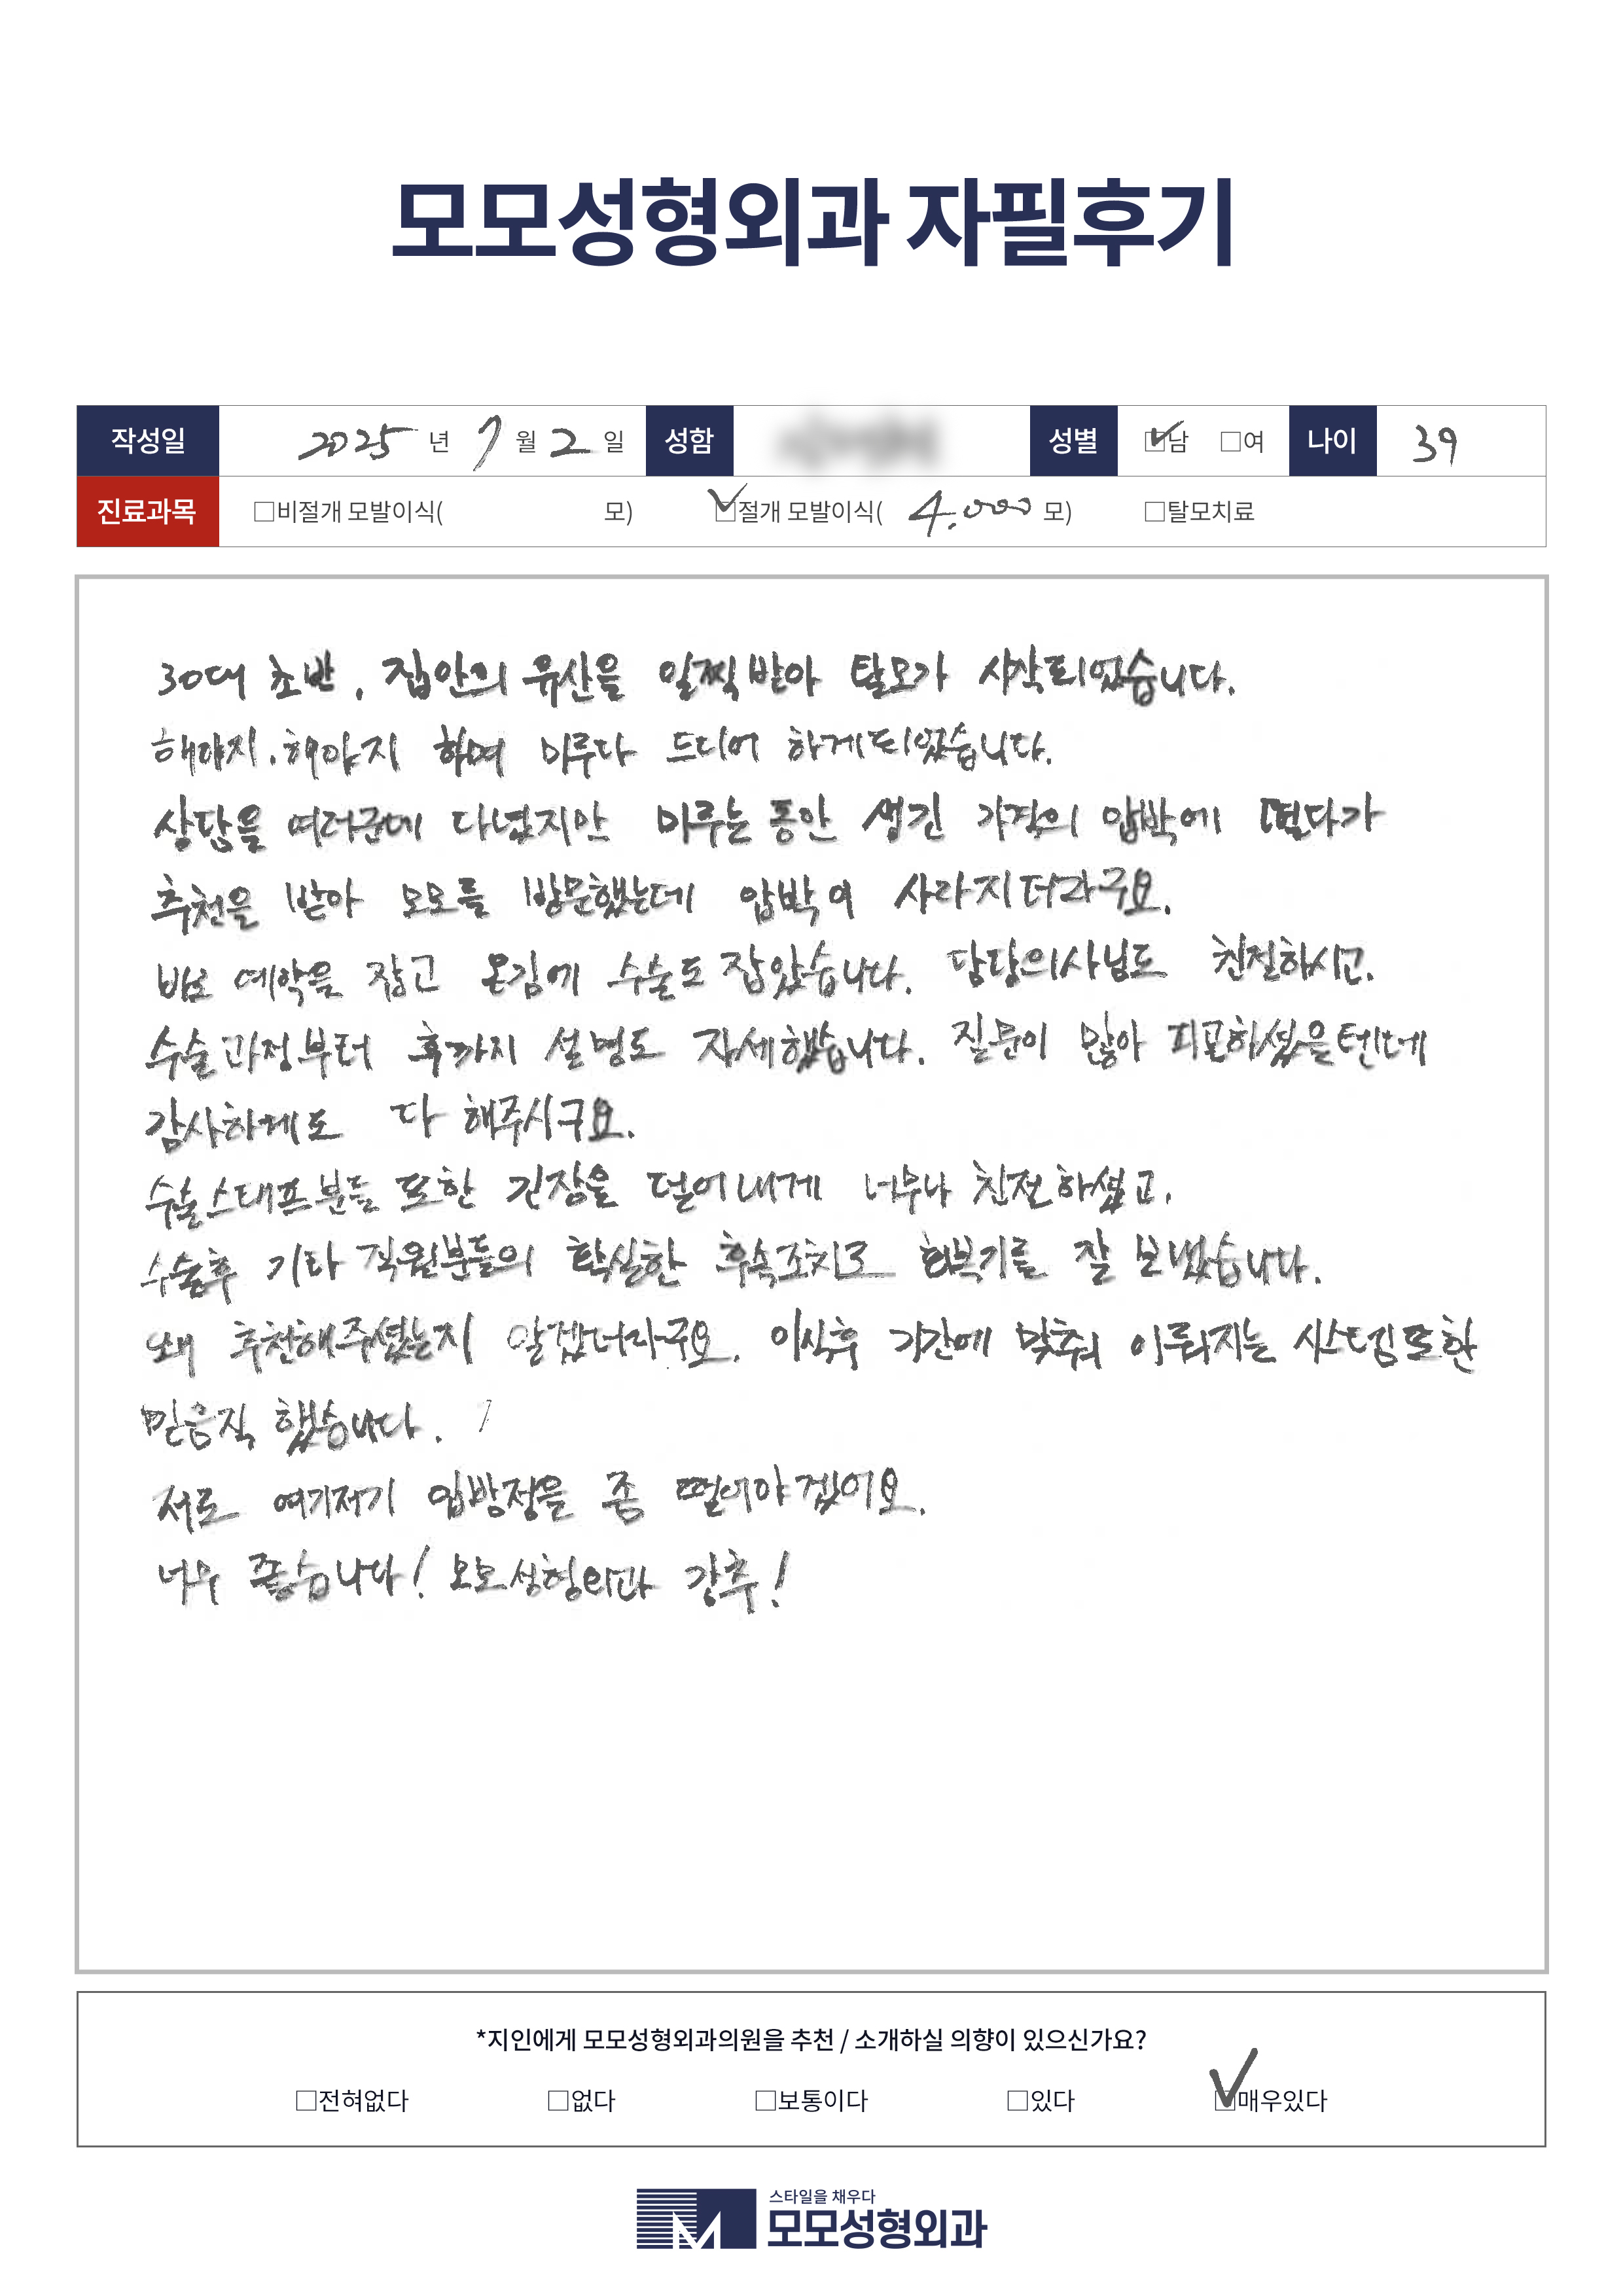 모모성형외과 자필후기
작성일 2025 년 7 월 2 일 성함 성별 ☑남 □여 나이 39
진료과목 □비절개 모발이식( 모) ☑절개 모발이식( 4.000 모) □탈모치료
30대 초반, 집안의 유산을 일찍 받아 탈모가 시작되었습니다.
해야지.해야지 하며 미루다 드디어 하게되었습니다.
상담을 여러군데 다녔지만 미루는 동안 생긴 가격의 압박에 떨다가
추천을 받아 모모를 방문했는데 압박이 사라지더라구요.
바로 예약을 잡고 온김에 수술도 잡았습니다. 담당의사님도 친절하시고.
수술과정부터 후까지 설명도 자세했습니다. 질문이 많아 피곤하셨을텐데
감사하게도 다 해주시구요.
수술스태프분들 또한 긴장을 덜어내게 너무나 친절하셨고.
수술후 기타 직원분들의 확실한 후속조치로 회복기를 잘 보냈습니다.
왜 추천해주셨는지 알겠더라구요. 이식후 기간에 맞춰 이뤄지는 시스템또한
믿음직 했습니다.
서로 여기저기 입방정을 좀 떨어야겠어요.
너무 좋습니다! 모모성형외과 강추!
*지인에게 모모성형외과의원을 추천 / 소개하실 의향이 있으신가요?
□전혀없다 □없다 □보통이다 □있다 ☑매우있다
스타일을 채우다
모모성형외과